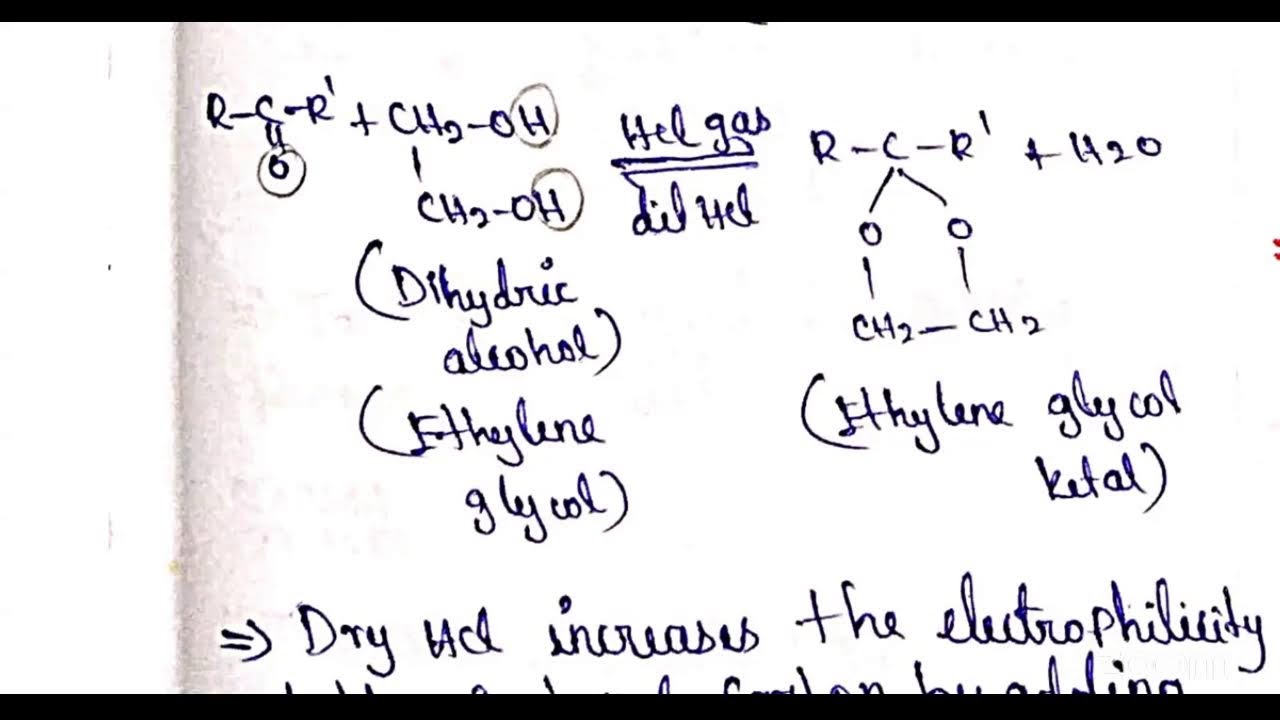 R-C-R' + CH2-OH HCl gas R-C-R' + H2O
O CH2-OH dil HCl O O
(Dihydric CH2-CH2
alcohol)
(Ethylene (Ethylene glycol
glycol) ketal)
⇒ Dry HCl increases the electrophilicity
by adding